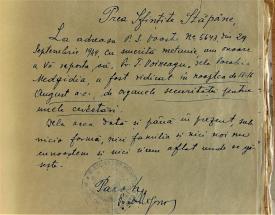 Prea Sfințite Stăpâne,
La adresa P. S. Voastre No 5643 din 29
Septembrie 1949 cu smerită metanie am onoare
a Vă raporta că, Pr. I. Voineagu, dela Parohia
Medgidia, a fost ridicat în noaptea de 15-16
August a.c. de organele securității pentru
unele cercetări.
Dela acea dată și până în prezent sub
nicio formă, nici familia și nici noi nu
cunoaștem și nici știm aflat unde se gă-
sește.
Paroh,